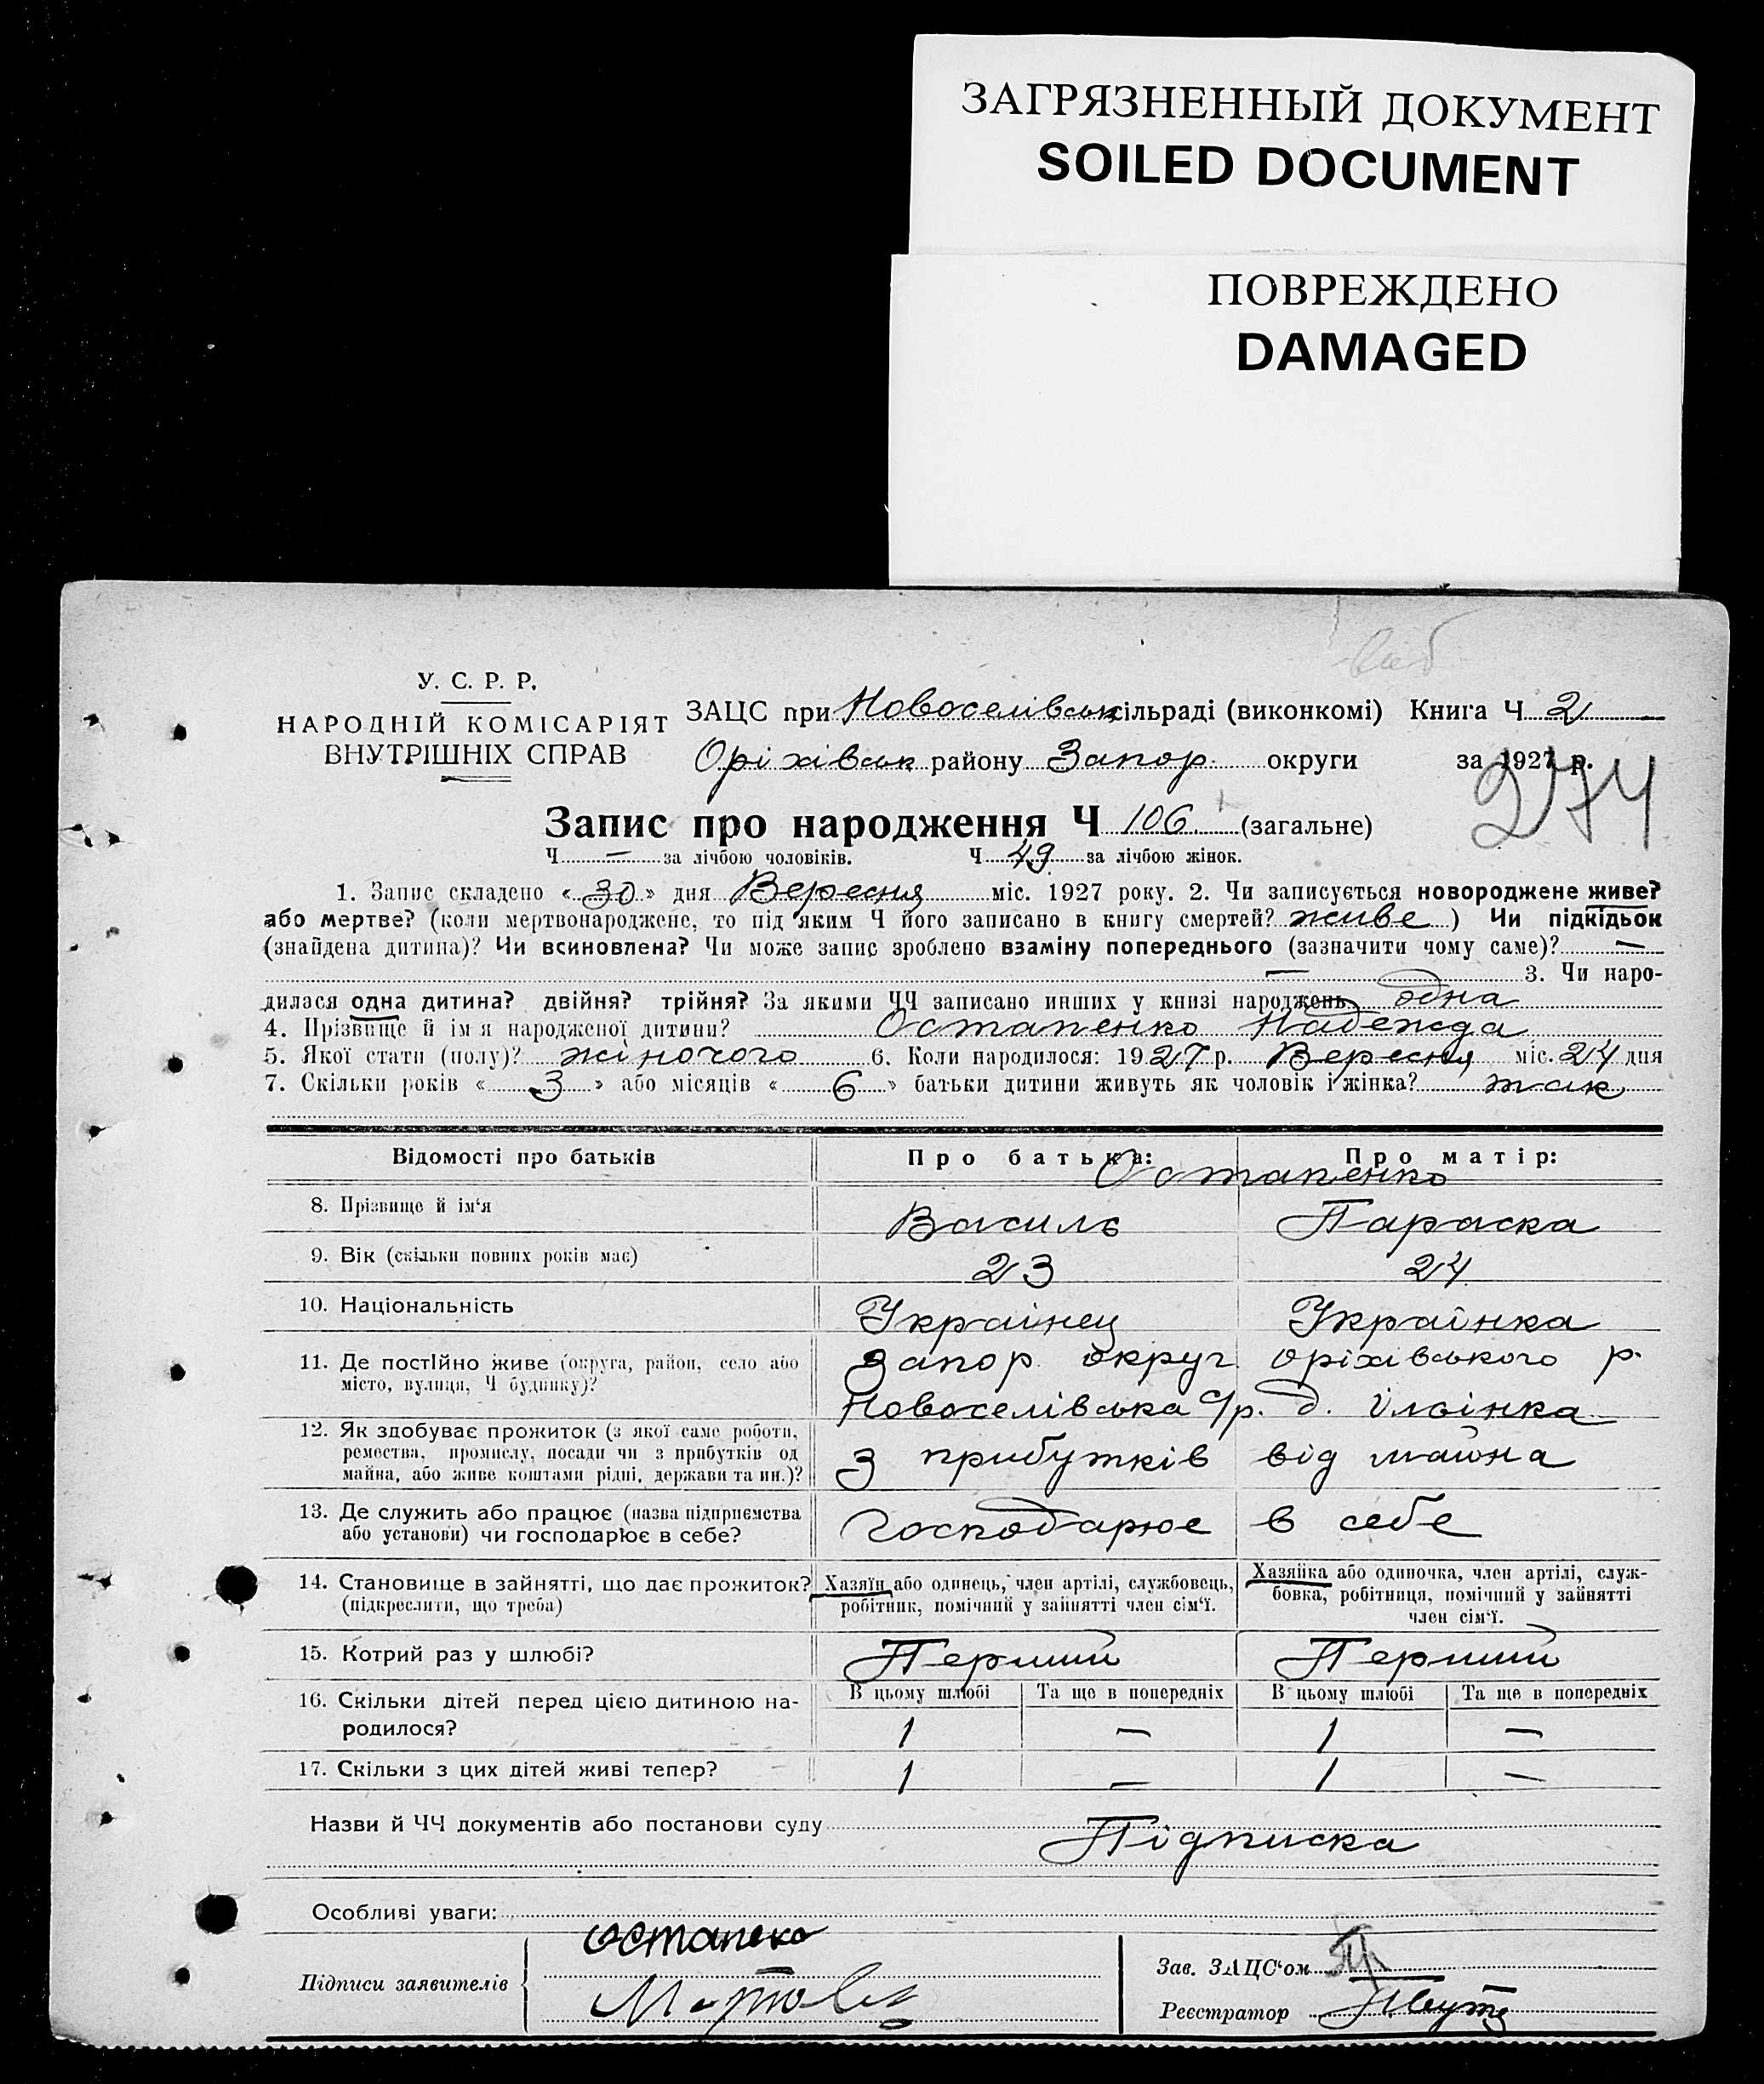 ЗАГРЯЗНЕННЫЙ ДОКУМЕНТ
SOILED DOCUMENT
ПОВРЕЖДЕНО
DAMAGED
У. С. Р. Р.
НАРОДНІЙ КОМІСАРІЯТ
ВНУТРІШНІХ СПРАВ
ЗАЦС при Новоселівськ сільраді (виконкомі) Книга Ч 2
Оріхівськ району Запор. округи за 1927 р.
274
Запис про народження Ч 106 (загальне)
Ч — за лічбою чоловіків. Ч 49 за лічбою жінок.
1. Запис складено «30» дня Вересня міс. 1927 року. 2. Чи записується новороджене живе?
або мертве? (коли мертвонароджене, то під яким Ч його записано в книгу смертей? живе) Чи підкідьок
(знайдена дитина)? Чи всиновлена? Чи може запис зроблено взаміну попереднього (зазначити чому саме)? —
— 3. Чи наро-
дилася одна дитина? двійня? трійня? За якими ЧЧ записано инших у книзі народжень одна
4. Прізвище й ім'я народженої дитини? Остапенко Надежда
5. Якої стати (полу)? жіночого 6. Коли народилося: 1927 р. Вересня міс. 24 дня
7. Скільки років «3» або місяців «6» батьки дитини живуть як чоловік і жінка? так
Відомості про батьків Про батька: Про матір:
Остапенко
8. Прізвище й ім'я Василь Параска
9. Вік (скільки повних років має) 23 24
10. Національність Украінец Українка
11. Де постійно живе (округа, район, село або Запор. округ. оріхівського р.
місто, вулиця, Ч будинку)? Новоселівська с/р. д. ільінка
12. Як здобуває прожиток (з якої саме роботи,
ремества, промислу, посади чи з прибутків од з прибутків від майна
майна, або живе коштами рідні, держави та ин.)?
13. Де служить або працює (назва підприємства господарює в себе
або установи) чи господарює в себе?
14. Становище в зайнятті, що дає прожиток? Хазяїн або одинець, член артілі, службовець, Хазяйка або одиночка, член артілі, служ-
(підкреслити, що треба) робітник, помічний у зайнятті член сім'ї. бовка, робітниця, помічний у зайнятті
член сім'ї.
15. Котрий раз у шлюбі? Перший Перший
16. Скільки дітей перед цією дитиною на- В цьому шлюбі Та ще в попередніх В цьому шлюбі Та ще в попередніх
родилося? 1 — 1 —
17. Скільки з цих дітей живі тепер? 1 — 1 —
Назви й ЧЧ документів або постанови суду
Підписка
Особливі уваги:
остапеко
Підписи заявителів
Зав. ЗАЦС'ом
Реєстратор